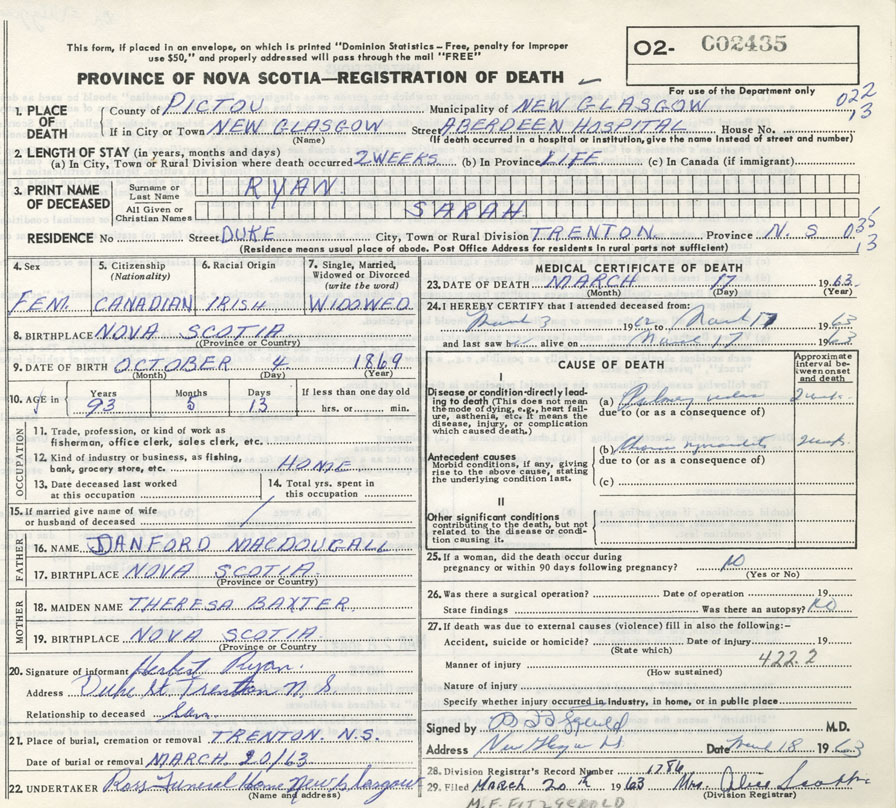 This form, if placed in an envelope, on which is printed "Dominion Statistics - Free, penalty for Improper
use $50," and properly addressed will pass through the mail "FREE"
PROVINCE OF NOVA SCOTIA—REGISTRATION OF DEATH
O2- C02435
For use of the Department only
022
13
1. PLACE OF DEATH
County of PICTOU Municipality of NEW GLASGOW
If in City or Town NEW GLASGOW Street ABERDEEN HOSPITAL House No.
(Name) (If death occurred in a hospital or institution, give the name instead of street and number)
2. LENGTH OF STAY (in years, months and days)
(a) In City, Town or Rural Division where death occurred 2 WEEKS (b) In Province LIFE (c) In Canada (if immigrant)
3. PRINT NAME OF DECEASED
Surname or Last Name RYAN
All Given or Christian Names SARAH
RESIDENCE No Street DUKE City, Town or Rural Division TRENTON Province N. S
(Residence means usual place of abode. Post Office Address for residents in rural parts not sufficient)
035
13
4. Sex FEM.
5. Citizenship (Nationality) CANADIAN
6. Racial Origin IRISH
7. Single, Married, Widowed or Divorced (write the word) WIDOWED
8. BIRTHPLACE NOVA SCOTIA
(Province or Country)
9. DATE OF BIRTH OCTOBER 4 1869
(Month) (Day) (Year)
10. AGE in Years 93 Months 5 Days 13 If less than one day old
hrs. or min.
OCCUPATION
11. Trade, profession, or kind of work as
fisherman, office clerk, sales clerk, etc.
12. Kind of industry or business, as fishing,
bank, grocery store, etc. HOME
13. Date deceased last worked
at this occupation
14. Total yrs. spent in
this occupation
15. If married give name of wife
or husband of deceased
FATHER
16. NAME DANFORD MACDOUGALL
17. BIRTHPLACE NOVA SCOTIA
(Province or Country)
MOTHER
18. MAIDEN NAME THERESA BAXTER
19. BIRTHPLACE NOVA SCOTIA
(Province or Country
20. Signature of informant Herbert Ryan.
Address Duke St. Trenton N. S
Relationship to deceased
21. Place of burial, cremation or removal TRENTON. N.S.
Date of burial or removal MARCH 20/63
22. UNDERTAKER Ross Funeral Home New Glasgow
(Name and address)
MEDICAL CERTIFICATE OF DEATH
23. DATE OF DEATH MARCH 17 1963
(Month) (Day) (Year)
24. I HEREBY CERTIFY that I attended deceased from:
March 3 19 to March 17 1963
and last saw alive on March 17 1963
CAUSE OF DEATH
Approximate interval between onset and death
I
Disease or condition directly lead-
ing to death (This does not mean
the mode of dying, e.g., heart fail-
ure, asthenia, etc. It means the
disease, injury, or complication
which caused death.)
(a)
due to (or as a consequence of)
Antecedent causes
Morbid conditions, if any, giving
rise to the above cause, stating
the underlying condition last.
(b)
due to (or as a consequence of)
(c)
II
Other significant conditions
contributing to the death, but not
related to the disease or condi-
tion causing it.
25. If a woman, did the death occur during
pregnancy or within 90 days following pregnancy? NO
(Yes or No)
26. Was there a surgical operation? Date of operation 19
State findings Was there an autopsy? NO
27. If death was due to external causes (violence) fill in also the following:-
Accident, suicide or homicide? Date of injury 19
(State which)
Manner of injury 422.2
(How sustained)
Nature of injury
Specify whether injury occurred in Industry, in home, or in public place
Signed by M.D.
Address Date March 18 1963
28. Division Registrar's Record Number 1286
29. Filed MARCH 20th 1963 Mrs. Alice
(Division Registrar)
M.F. FITZGERALD